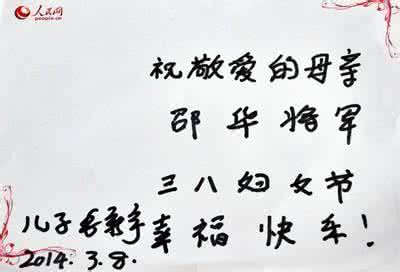 人民网
people.cn
祝敬爱的母亲
邵华将军
三八妇女节
儿子毛新宇 幸福快乐!
2014.3.8.